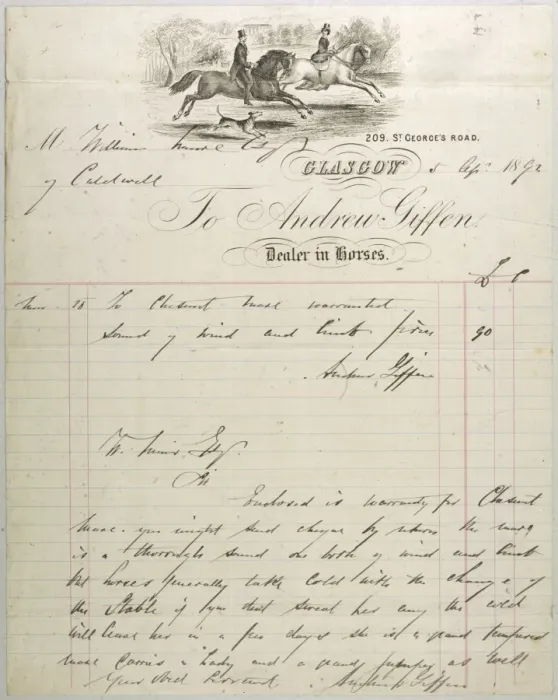 209. ST GEORGE'S ROAD.
M William Esqr
GLASGOW 5 Apl 1892
of Caldwell
To Andrew Giffen.
Dealer in Horses.
£
28 To Chesnut mare warranted
sound of wind and limb price 90
Andrew Giffen
W. Esq.
Sir
Enclosed is warranty for Chesnut
mare. you might send cheque by return the mare
is a thorough sound one both of wind and limb
but horses generally take cold with the change of
the Stable if you dont sweat her any the cold
will leave her in a few days she is a grand tempered
mare carries a Lady and a grand jumper as well
Your Obed Servant Andrew Giffen